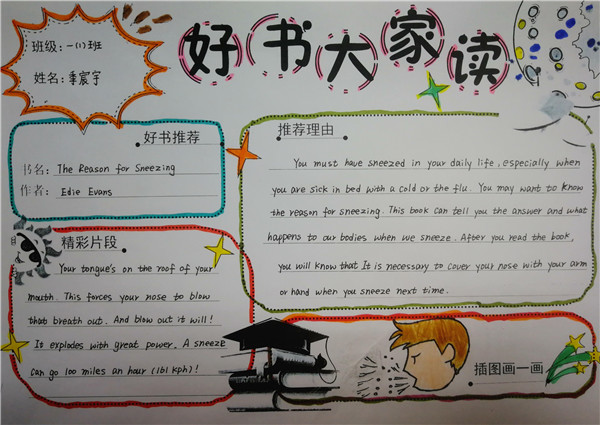 班级:一(1)班
姓名:季宸宇
好书大家读
好书推荐
书名: The Reason for Sneezing
作者: Edie Evans
推荐理由
You must have sneezed in your daily life, especially when
you are sick in bed with a cold or the flu. You may want to know
the reason for sneezing. This book can tell you the answer and what
happens to our bodies when we sneeze. After you read the book,
you will know that It is necessary to cover your nose with your arm
or hand when you sneeze next time.
精彩片段
Your tongue's on the roof of your
mouth. This forces your nose to blow
that breath out. And blow out it will!
It explodes with great power. A sneeze
can go 100 miles an hour (161 kph)!
插图画一画